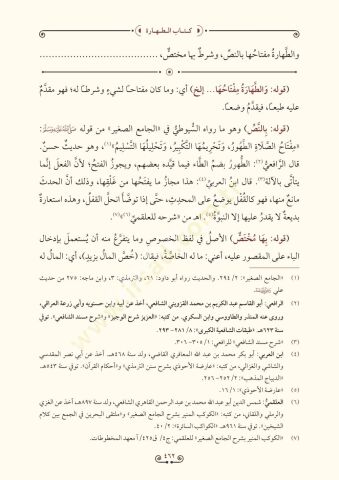 كتاب الطهارة
والطَّهارةُ مفتاحُها بالنصّ، وشرطٌ بها مختصٌّ، ....................................
(قوله: وَالطَّهَارَةُ مِفْتَاحُهَا... إلخ) أي: وما كان مفتاحًا لشيءٍ وشرطًا له؛ فهو مقدَّمٌ
عليه طبعًا، فيقدَّمُ وضعًا.
(قوله: بِالنَّصِّ) وهو ما رواه السُّيوطيُّ في «الجامع الصغير» من قوله ﷺ:
«مِفْتَاحُ الصَّلَاةِ الطَّهُورُ، وَتَحْرِيمُهَا التَّكْبِيرُ، وَتَحْلِيلُهَا التَّسْلِيمُ»(١)، وهو حديثٌ حسنٌ.
قال الرَّافعيُّ(٢): الطُّهورُ بضمِّ الطَّاء فيما قيَّده بعضهم، ويجوزُ الفتحُ؛ لأنَّ الفعلَ إنَّما
يتأتَّى بالآلة(٣). قال ابنُ العربيِّ(٤): هذا مجازُ ما يفتَحُها من غَلْقِها، وذلك أنَّ الحدثَ
مانعٌ منها، فهو كالقُفْلِ يوضعُ على المحدِثِ، حتَّى إذا توضَّأ انحلَّ القفلُ، وهذه استعارةٌ
بديعةٌ لا يقدرُ عليها إلا النبوَّةُ(٥). اهـ من «شرحه للعلقميِّ»(٦)(٧).
(قوله: بِهَا مُخْتَصٌّ) الأصلُ في لفظ الخصوص وما يتفرَّعُ منه أن يُستعملَ بإدخال
الباء على المقصور عليه، أعني: ما له الخاصَّةُ، فيقال: (خُصَّ المالُ بزيدٍ)، أي: المالُ له
(١) «الجامع الصغير»: ٢/ ٢٩٤. والحديث رواه أبو داود: ٦١، والترمذي: ٣، وابن ماجه: ٢٧٥ من حديث
علي
(٢) الرافعي: أبو القاسم عبد الكريم بن محمد القزويني الشافعي، أخذ عن أبيه وابن حسنويه وأبي زرعة العراقي،
وروى عنه المنذر والطاووسي وابن السكري. من كتبه: «العزيز شرح الوجيز» و«شرح مسند الشافعي». توفي
سنة ٦٢٣هـ. «طبقات الشافعية الكبرى»: ٨/ ٢٨١-٢٩٣.
(٣) «شرح مسند الشافعي» للرافعي: ١/ ٣٠٥-٣٠٦.
(٤) ابن العربي: أبو بكر محمد بن عبد الله المعافري القاضي، ولد سنة ٤٦٨هـ. أخذ عن أبي نصر المقدسي
والشاشي والغزالي، من كتبه: «عارضة الأحوذي بشرح سنن الترمذي» و«أحكام القرآن». توفي سنة ٥٤٣هـ.
«الديباج المذهب»: ٢/ ٢٥٢-٢٥٦.
(٥) «عارضة الأحوذي»: ١/ ١٦.
(٦) العلقمي: شمس الدين أبو عبد الله محمد بن عبد الرحمن القاهري الشافعي، ولد سنة ٨٩٧هـ، أخذ عن الغزي
والرملي واللقاني، من كتبه: «الكوكب المنير بشرح الجامع الصغير» و«ملتقى البحرين في الجمع بين كلام
الشيخين». توفي سنة ٩٦١هـ. «الكواكب السائرة»: ٢/ ٤٠.
(٧) «الكوكب المنير بشرح الجامع الصغير» للعلقمي: ج٤/ ق٤٣٥/أ معهد المخطوطات.
٤٦٢